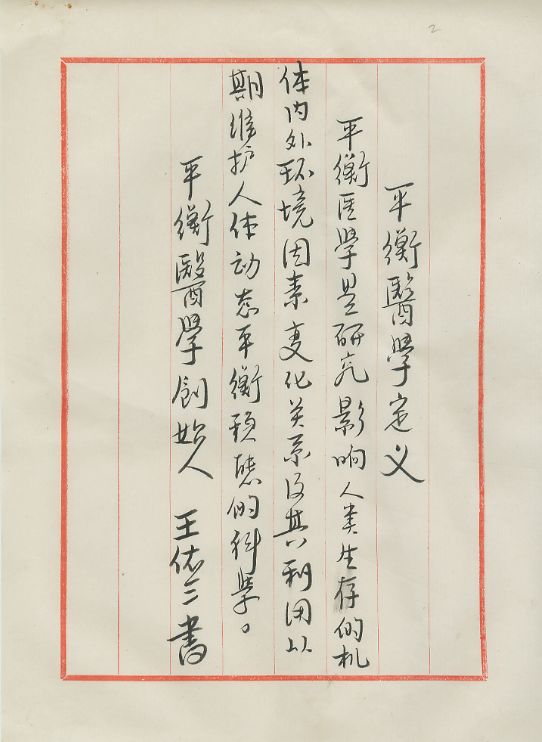 2
平衡醫學定义
平衡医學是研究影响人类生存的机
体内外环境因素变化关系及其利因以
期维护人体动态平衡稳态的科學。
平衡醫學創始人 王佑三書